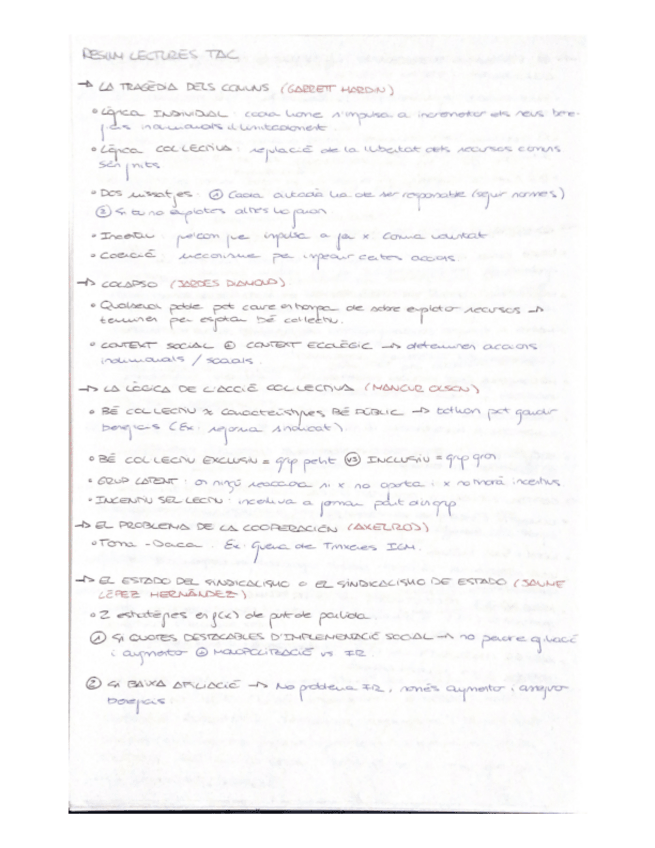 RESUM LECTURES TAC
→ LA TRAGÈDIA DELS COMUNS (GARRETT HARDIN)
• Lògica INDIVIDUAL : cada home s'impulsa a incrementar els seus bene-
ficis individuals il·limitadament.
• Lògica COL·LECTIVA : regulació de la llibertat dels recursos comuns
són finits.
• Dos missatges: ① Cada ciutadà ha de ser responsable (seguir normes)
② Si tu no explotes altres ho faran.
• Incentiu : que impulsa a fer x Coma voluntat
• Coerció : mecanisme per impedir certes accions
→ COLAPSO (JARDES DIAMOND)
• Qualsevol poble pot caure en trampa de sobre explotar recursos →
terminen per esgotar bé col·lectiu.
• CONTEXT SOCIAL ⊕ CONTEXT ECOLÒGIC → determinen accions
individuals / socials.
→ LA LÒGICA DE L'ACCIÓ COL·LECTIVA (MANCUR OLSON)
• BÉ COL·LECTIU x Característiques BÉ PÚBLIC → tothom pot gaudir
beneficis (Ex: reforma sindicat)
• BÉ COL·LECTIU EXCLUSIU = grup petit VS INCLUSIU = grup gran
• GRUP LATENT : on ningú reacciona ni x no aporta i x no haurà incentius.
• INCENTIU SELECTIU : incentiva a formar part d'un grup
→ EL PROBLEMA DE LA COOPERACIÓN (AXELROD)
• Toma - Daca . Ex: guerra de Trinxeres IGM.
→ EL ESTADO DEL SINDICALISMO O EL SINDICALISMO DE ESTADO (JAUME
LÓPEZ HERNÁNDEZ)
• 2 estratègies en f(x) de punt de partida
① SI QUOTES DESTACABLES D'IMPLEMENTACIÓ SOCIAL → no perdre afiliació
i augmentar ⊕ MONOPOLITZACIÓ vs IR
② SI BAIXA AFILIACIÓ → No problema IR, només augmentar i
beneficis